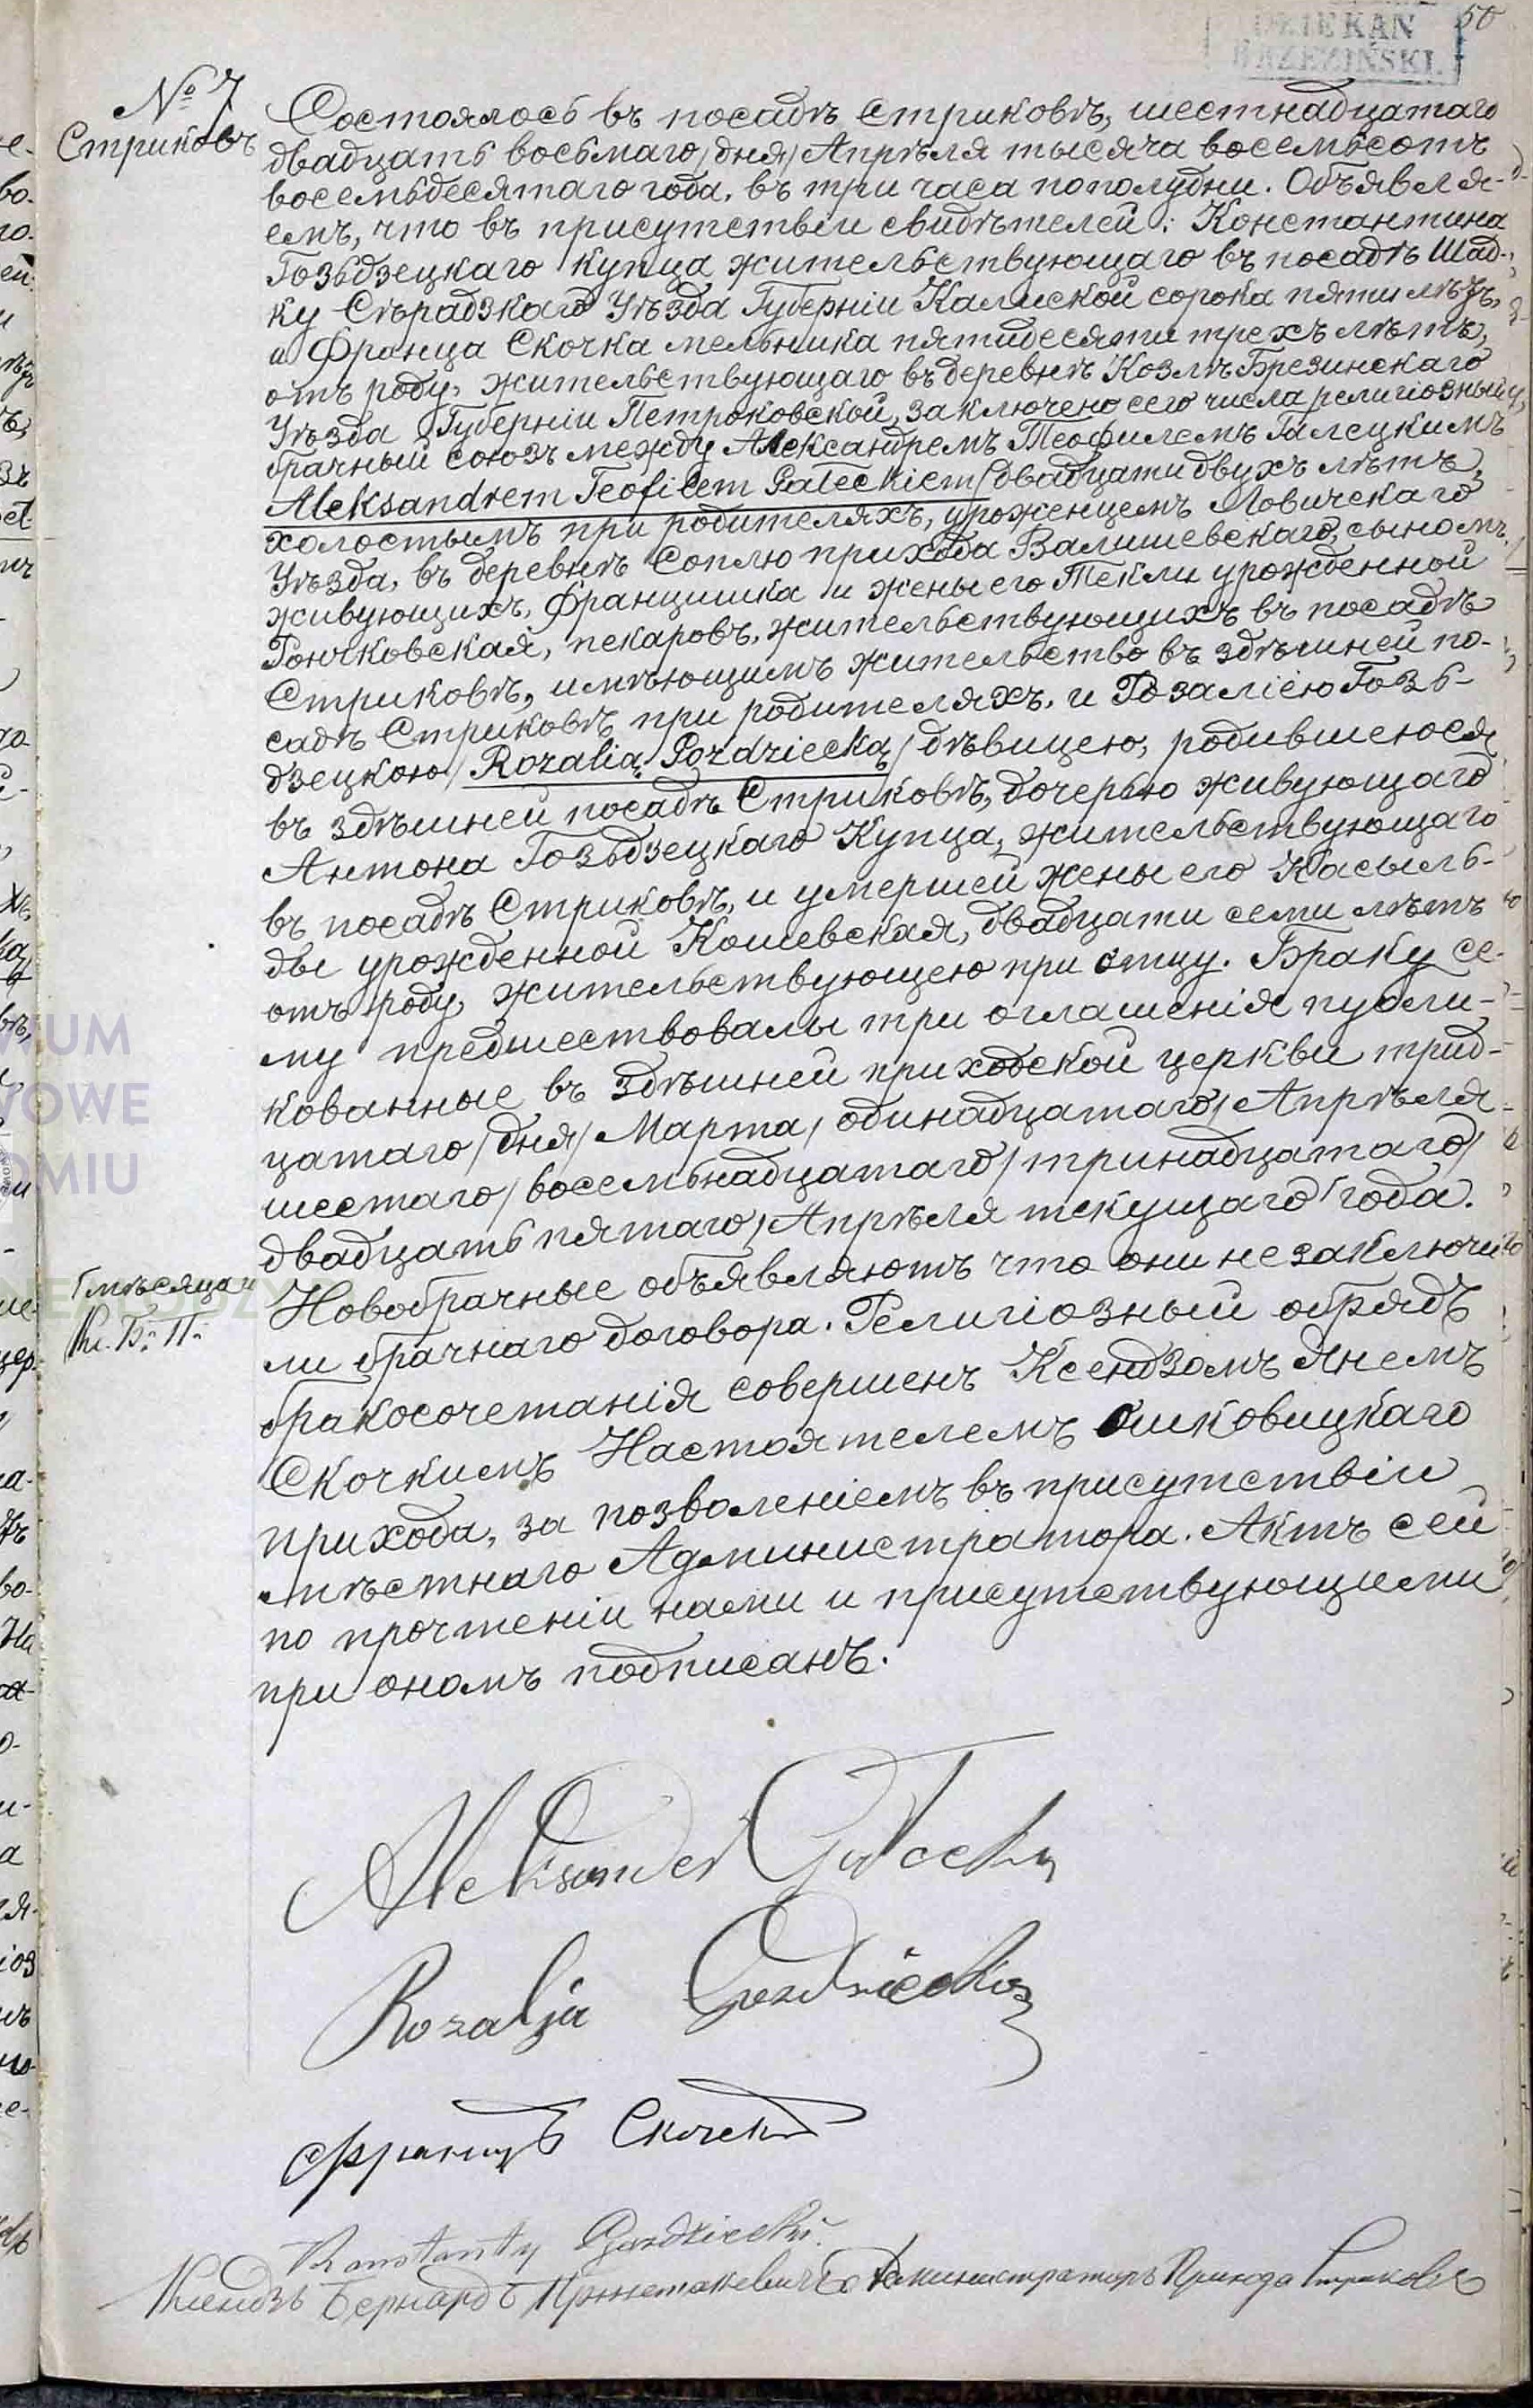 50
DZIEKAN
BRZEZIŃSKI.
№ 7
Стриковъ
Состоялось въ посадѣ Стриковѣ, шестнадцатаго
двадцать восьмаго/дня/Апрѣля тысяча восемьсотъ
восемьдесятаго года, въ три часа пополудни. Объявля-
емъ, что въ присутствіи свидѣтелей: Константина
Гозьдзецкаго купца жительствующаго въ посадѣ Шад-
ку Сѣрадзкаго Уѣзда Губерніи Калиской сорока пяти лѣтъ,
и Франца Скочка мельника пятидесяти трехъ лѣтъ,
отъ роду, жительствующаго въ деревнѣ Козлѣ Брезинскаго
Уѣзда Губерніи Петроковской, заключено сего числа религіозный
брачный союзъ между Александремъ Теофилемъ Галецкимъ
Aleksandrem Teofilem Gałeckiem/двадцати двухъ лѣтъ,
холостымъ при родителяхъ, уроженцемъ Ловичскаго
Уѣзда, въ деревнѣ Соплю прихода Валишевскаго, сыномъ
живующихъ, Францишка и жены его Текли урожденной
Рончковская, пекаровъ, жительствующихъ въ посадѣ
Стриковѣ, имѣющимъ жительство въ здѣшней по-
садѣ Стриковѣ при родителяхъ, и Розаліею Гозь-
дзецкою/Rozalią Gozdziecką/дѣвицею, родившеюся
въ здѣшней посадѣ Стриковѣ, дочерью живующаго
Антона Гозьдзецкаго Купца, жительствующаго
въ посадѣ Стриковѣ, и умершей жены его Касыль-
ды урожденной Кошевская, двадцати семи лѣтъ
отъ роду, жительствующею при отцу. Браку се-
му предшествовалы три оглашенія публи-
кованные въ здѣшней приходской церкви трид-
цатаго/дня/Марта/одинадцатаго/Апрѣля
шестаго/восемьнадцатаго/тринадцатаго/
двадцать пятаго/Апрѣля текущаго года.
Новобрачные объявляютъ что они не заключи-
ли брачнаго договора. Религіозный обрядъ
бракосочетанія совершенъ Ксендзомъ Янемъ
Скочкимъ Настоятелемъ Ошковицкаго
прихода, за позволеніемъ въ присутствіи
мѣстнаго Администратора. Актъ сей
по прочтеніи нами и присутствующими
при ономъ подписанъ.
мѣсяца
Кс. Б. П.
Aleksander Gałecki
Rozalja Gozdziecka
Францъ Скочекъ
Konstanty Gozdziecki.
Ксендзъ Бернардъ Администраторъ Прихода Стриковъ